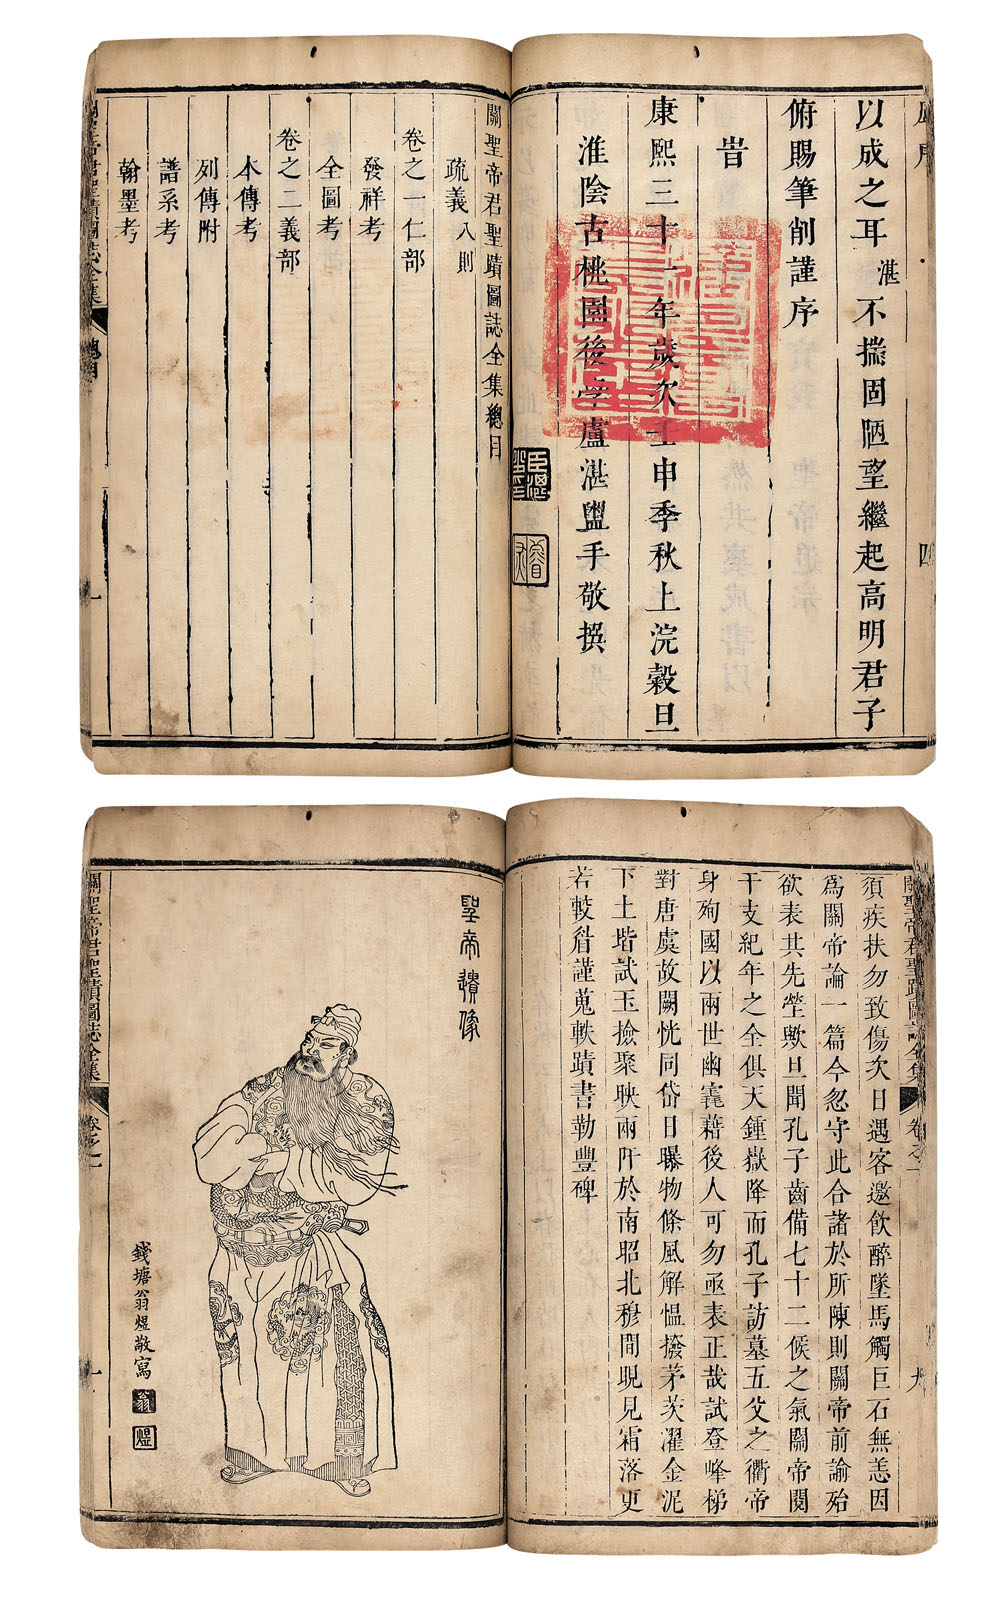 以成之耳湛不揣固陋望繼起高明君子
俯賜筆削謹序
旹
康熙三十一年歲次壬申季秋上浣穀旦
淮陰古桃園後學盧湛盥手敬撰
四
關聖帝君聖蹟圖誌全集總目
疏義八則
卷之一仁部
發祥考
全圖考
卷之二義部
本傳考
列傳附
譜系考
翰墨考
關聖帝君聖蹟圖誌全集
總目
一
關聖帝君聖蹟圖誌全集
卷之一
須疾扶勿致傷次日遇客邀飲醉墜馬觸巨石無恙因
爲關帝論一篇今忽守此合諸於所陳則關帝前諭殆
欲表其先塋歟且聞孔子齒備七十二候之氣關帝閱
干支紀年之全俱天鍾嶽降而孔子訪墓五父之衢帝
身殉國以兩世幽竁藉後人可勿亟表正哉試登峰梯
對唐虞故闕恍同岱日曝物條風解慍撥茅茨濯金泥
下土堦試玉撿聚映兩阡於南昭北穆間晛見霜落更
若較㫺謹蒐軼蹟書勒豐碑
聖帝遺像
錢塘翁煜敬寫
翁
煜
關聖帝君聖蹟圖誌全集
卷之一